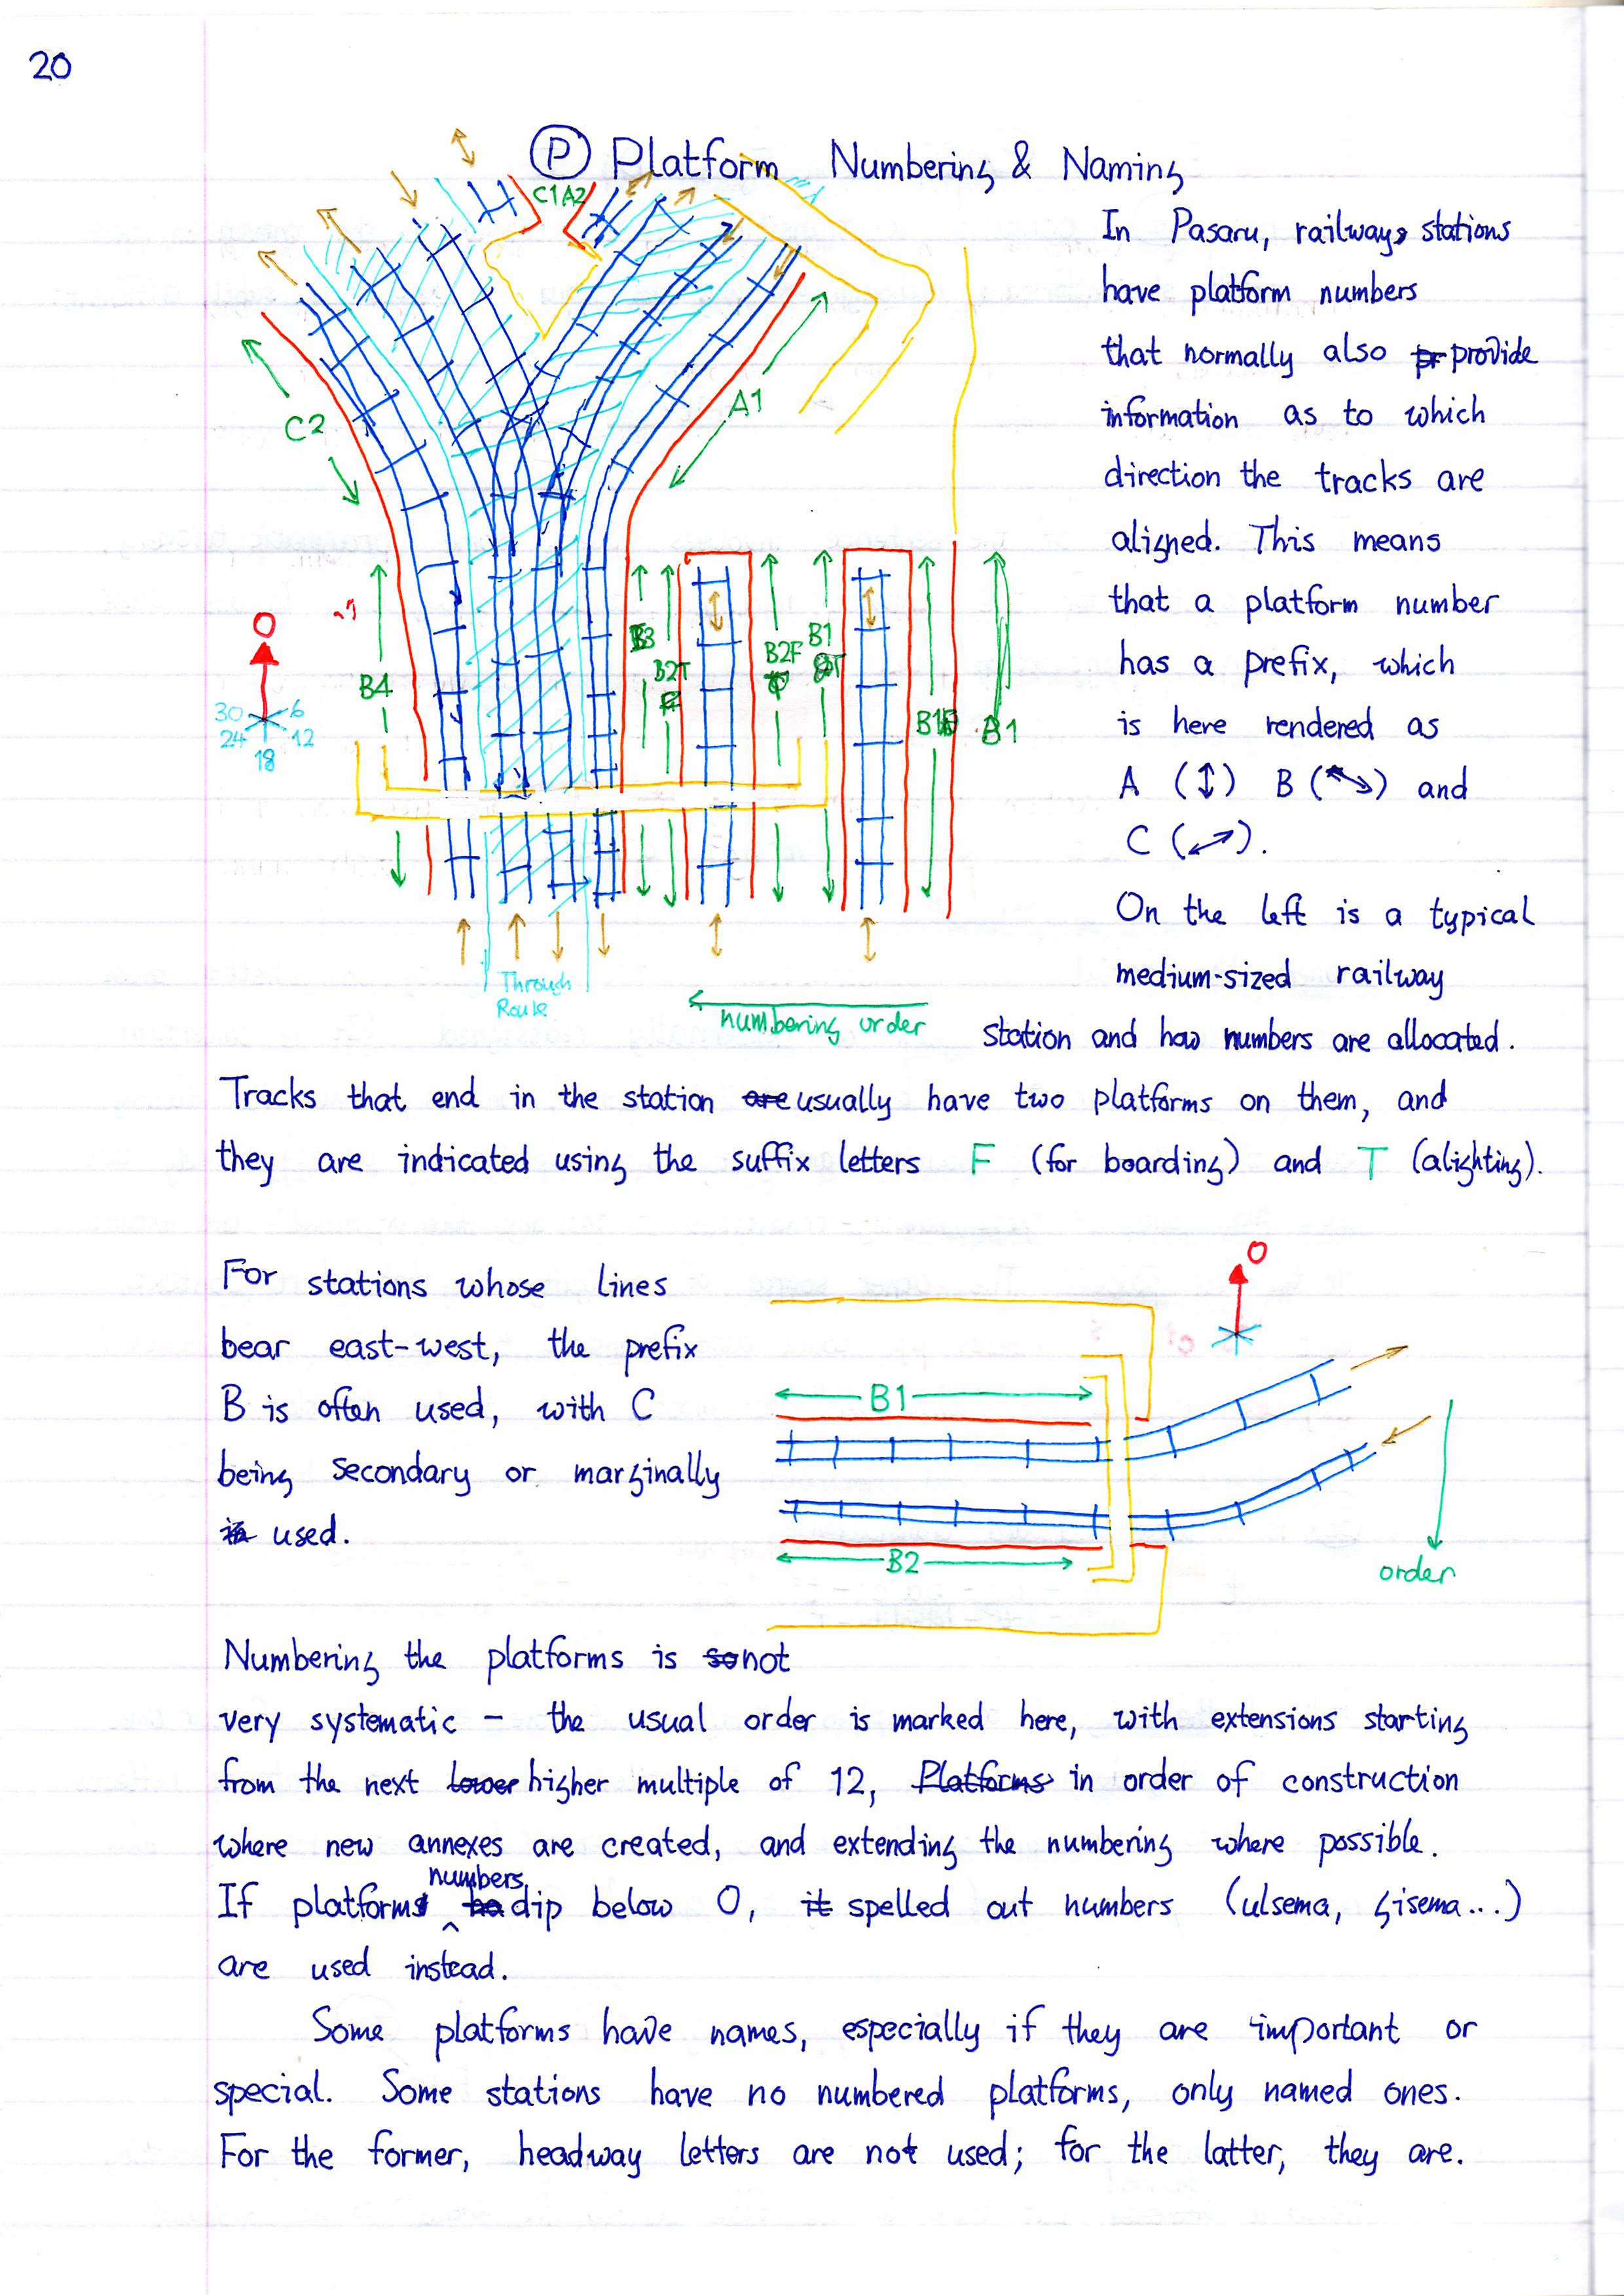 20
Ⓟ Platform Numbering & Naming
C1 A2
In Pasaru, railways stations
have platform numbers
that normally also pr provide
information as to which
direction the tracks are
aligned. This means
that a platform number
has a prefix, which
is here rendered as
A (↕) B (⤡) and
C (⤢).
On the left is a typical
medium-sized railway
station and how numbers are allocated.
C2
A1
O
30 6
24 12
18
B4
B3
B2T
B2F
B1
B1
B1
Through
Route
numbering order
Tracks that end in the station are usually have two platforms on them, and
they are indicated using the suffix letters F (for boarding) and T (alighting).
For stations whose lines
bear east-west, the prefix
B is often used, with C
being secondary or marginally
in used.
O
B1
B2
order
Numbering the platforms is so not
very systematic – the usual order is marked here, with extensions starting
from the next lower higher multiple of 12, Platforms in order of construction
where new annexes are created, and extending the numbering where possible.
If platforms numbers ha dip below 0, it spelled out numbers (ulsema, gisema...)
are used instead.
Some platforms have names, especially if they are important or
special. Some stations have no numbered platforms, only named ones.
For the former, headway letters are not used; for the latter, they are.